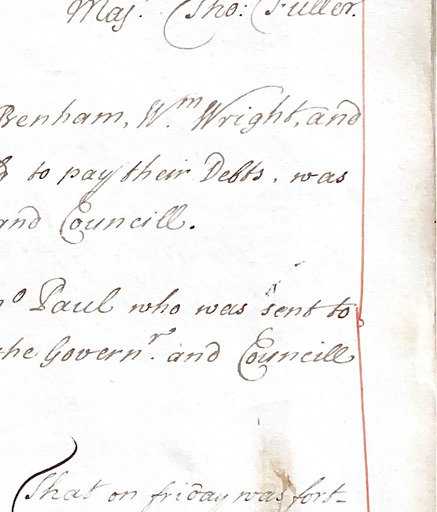 Maj.r Tho: Fuller.
Brenham, W.m Wright, and
to pay their Debts, was
and Councill.
Paul who was sent to
the Govern.r and Councill
That on friday was fort-